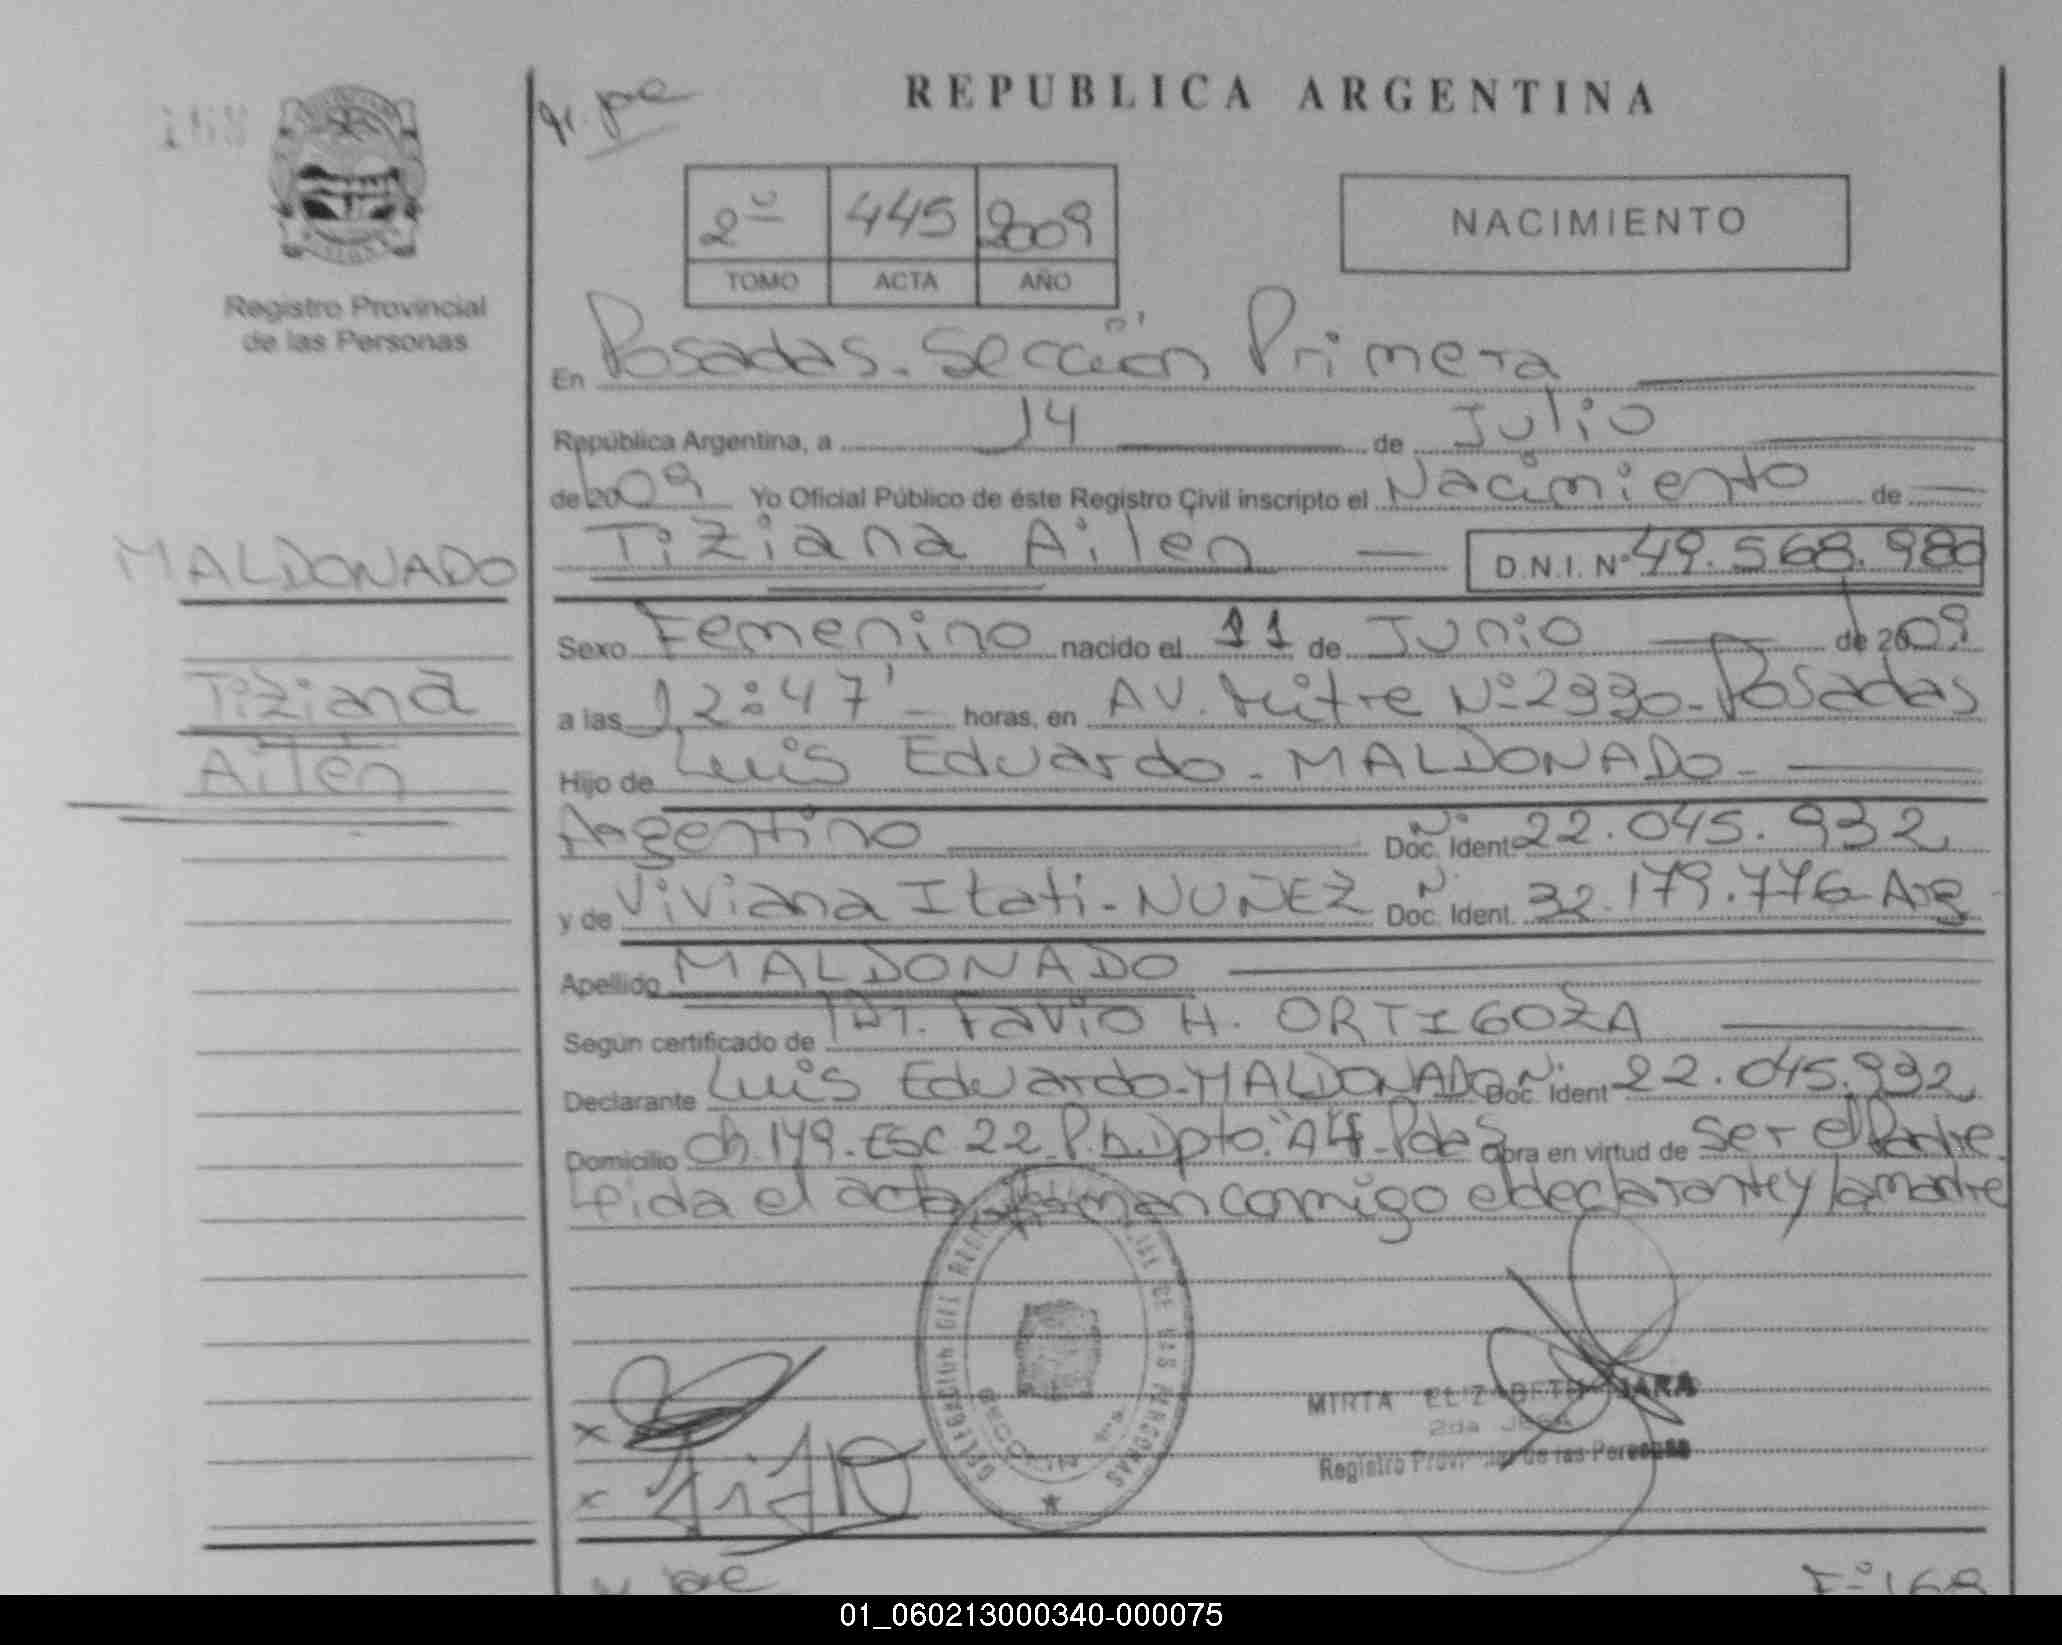 168
REPUBLICA ARGENTINA
2º 445 2009
TOMO ACTA AÑO
NACIMIENTO
Registro Provincial
de las Personas
En Posadas. Sección Primera
República Argentina, a 14 de Julio
de 2009 Yo Oficial Público de éste Registro Civil inscripto el Nacimiento de
Tiziana Ailén D.N.I. Nº 49.568.980
MALDONADO
Tiziana
Ailén
Sexo Femenino nacido el 11 de Junio de 2009
a las 12:47' horas, en AV. Mitre Nº 2330-Posadas
Hijo de Luis Eduardo - MALDONADO-
Argentino Nº Doc. Ident 22.045.932
y de Viviana Itati-NUÑEZ Nº Doc. Ident. 32.179.776-Arg
Apellido MALDONADO
Según certificado de Favio H. ORTIGOZA
Declarante Luis Eduardo-MALDONADO Nº Doc. Ident 22.045.932
Domicilio ch.179.ESC 22 P.b.Dpto."A4"-Pdas Obra en virtud de ser el Padre.
Leida el acta firman conmigo el declarante y la madre
DELEGACION DEL REGISTRO DE LAS PERSONAS
MIRTA ELIZABETH JARA
2da JEFA
Registro Provincial de las Personas
Fº 168
01_060213000340-000075